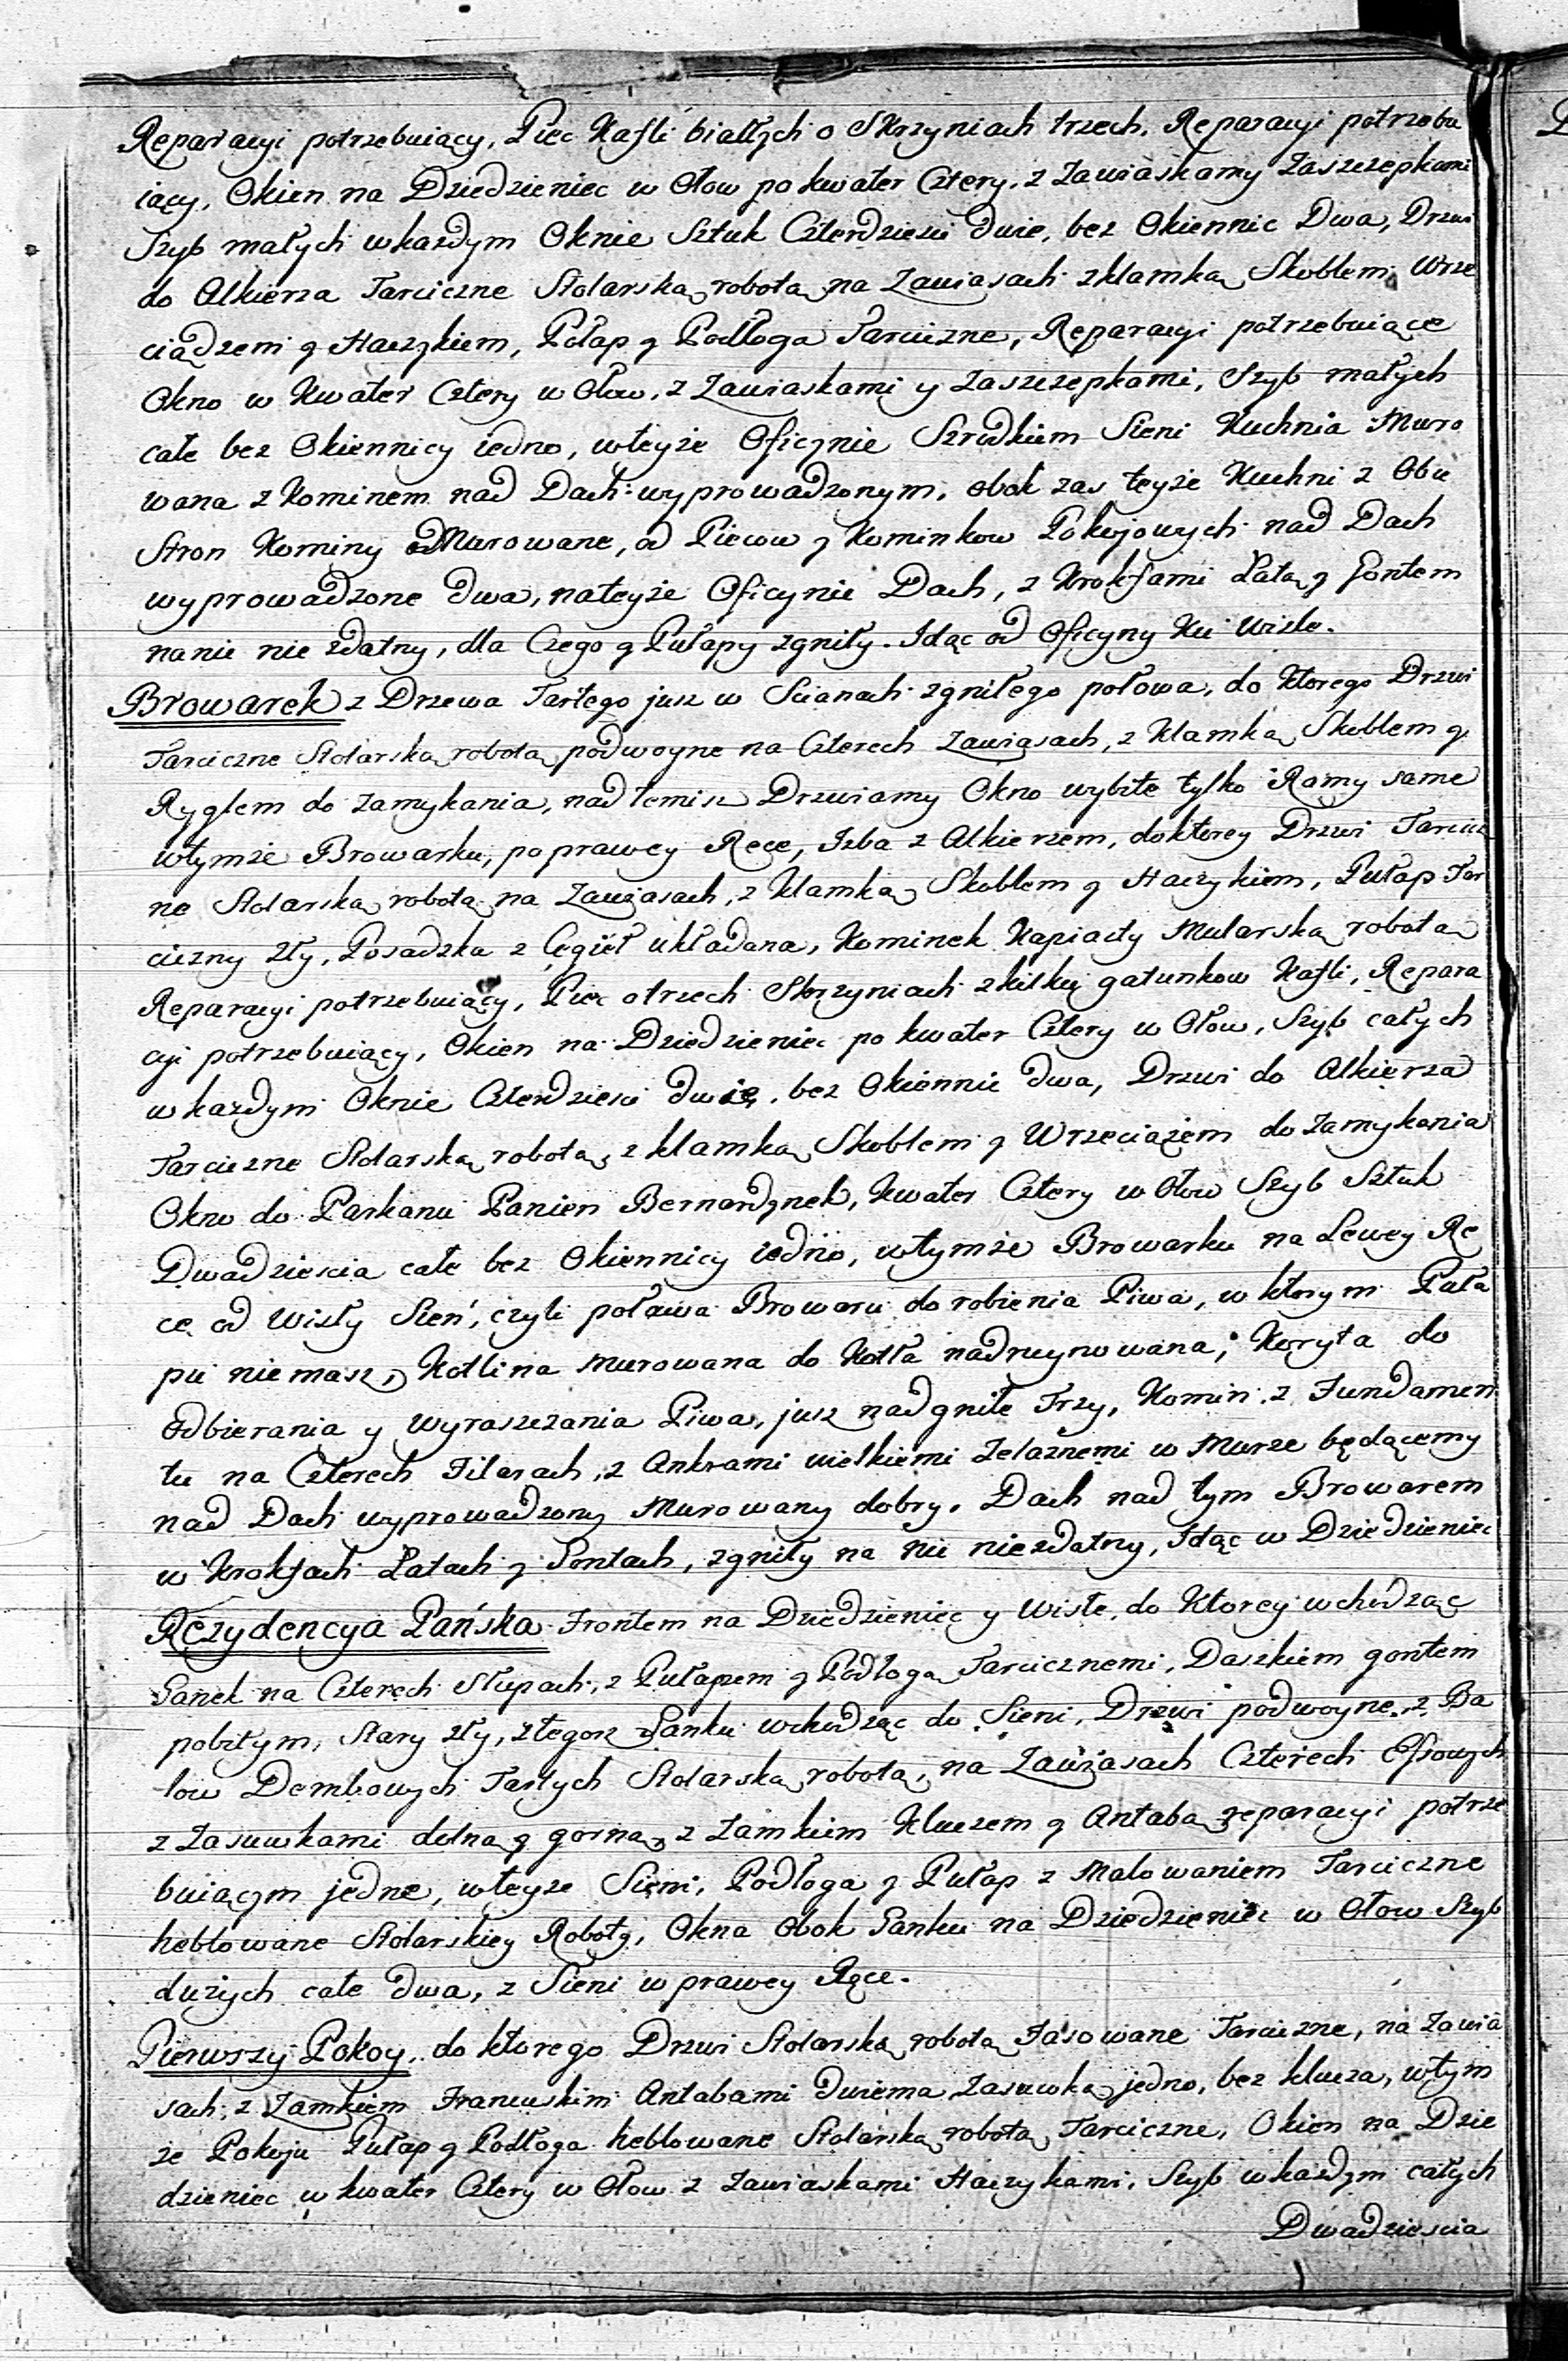 Reparacyi potrzebuiący, Piec Kafli białych o Skrzyniach trzech, Reparacyi potrzebu
iący, Okien na Dziedzieniec w Ołow po kwater Cztery, z Zawiaskamy Zaszczepkami
Szyb małych w kazdym Oknie Sztuk Czterdziesci dwie, bez Okiennic Dwa, Drzwi
do Alkierza Tarciczne Stolarską robotą na Zawiasach z klamką Skoblem, Wrze
ciądzem y Haczykiem, Pułap y Podłoga Tarciczne, Reparacyi potrzebuiące
Okno w Kwater Cztery w Ołow, z Zawiaskami y Zaszczepkami, Szyb małych
całe bez Okiennicy iedno, wteyże Oficynie Szrodkiem Sieni Kuchnia Muro
wana z Kominem nad Dach wyprowadzonym, obok zas teyże Kuchni z Obu
Stron Kominy Murowane, od Piecow y Kominkow Pokojowych nad Dach
wyprowadzone dwa, nateyże Oficynie Dach, z Krokfami Łatą y Gontem
nanic nie zdatny, dla Czego y Pułapy zgniły. Idąc od Oficyny Ku Wisle.
Browarek z Drzewa Tartego jusz w Scianach zgniłego połowa, do Ktorego Drzwi
Tarciczne Stolarską robotą podwoyne na Czterech Zawiasach, z Klamką Skoblem y
Ryglem do zamykania, nad temisz Drzwiamy Okno wybite tylko Ramy same
wtymże Browarku, po prawey Ręce, Izba z Alkierzem, doktorey Drzwi Tarcicz
ne Stolarską robotą na Zawiasach, z Klamką Skoblem y Haczykiem, Pułap Tar
ciczny zły, Posadzka z Cegieł układana, Kominek Kapiasty Mularską robotą
Reparacyi potrzebuiący, Piec otrzech Skrzyniach zkilku gatunkow Kafli, Repara
cyi potrzebuiący, Okien na Dziedzieniec po kwater Cztery w Ołow, Szyb całych
w kazdym Oknie Czterdziesci dwie, bez Okiennic dwa, Drzwi do Alkierza
Tarciczne Stolarską robotą, z klamką Skoblem y Wrzeciążem do Zamykania
Okno do Parkanu Panien Bernardynek, Kwater Cztery w Ołow Szyb Sztuk
Dwadziescia całe bez Okiennicy iedno, wtymże Browarku na Lewey Rę
ce od Wisły Sień, czyli poławа Browaru do robienia Piwa, w ktorym Puła
pu niemasz, Kotlina murowana do Kotła nadruynowana, Koryta do
Odbierania y Wyraszczania Piwa, jusz nadgniłe Trzy, Komin z Fundamen
tu na Czterech Filarach, z Ankrami wielkiemi Zelaznemi w Murze będącemy
nad Dach wyprowadzony Murowany dobry. Dach nad tym Browarem
w Krokfach Łatach y Gontach, zgniły na nic niezdatny, Idąc w Dziedzieniec
Rezydencya Pańska Frontem na Dziedzieniec y Wisłe, do Ktorey wchodząc
Ganek na Czterech Słupach, z Pułapem y Podłogą Tarcicznemi, Daszkiem gontem
pobitym, Stary zły, ztegosz Ganku wchodząc do Sieni, Drzwi podwoyne z Ba
low Dembowych Tartych Stolarską robotą, na Zawiasach Czterech Esowych
z Zasuwkami dolną y gorną, z Zamkiem Kluczem y Antabą reparacyi potrze
buiącym jedne, wteyze Sieni, Podłoga y Pułap z Malowaniem Tarciczne
heblowane Stolarskiey Roboty, Okna Obok Ganku na Dziedzieniec w Ołow Szyb
dużych całe dwa, z Sieni w prawey Ręce.
Pierwszy Pokoy, do ktorego Drzwi Stolarską robotą Fasowane Tarciczne, na Zawia
sach, z Zamkiem Francuskim Antabami dwiema Zasuwką jedno, bez klucza, wtym
że Pokoju Pułap y Podłoga heblowane Stolarską robotą Tarciczne, Okien na Dzie
dzieniec w kwater Cztery w Ołow z Zawiaskami Haczykami, Szyb wkażdym całych
Dwadziescia